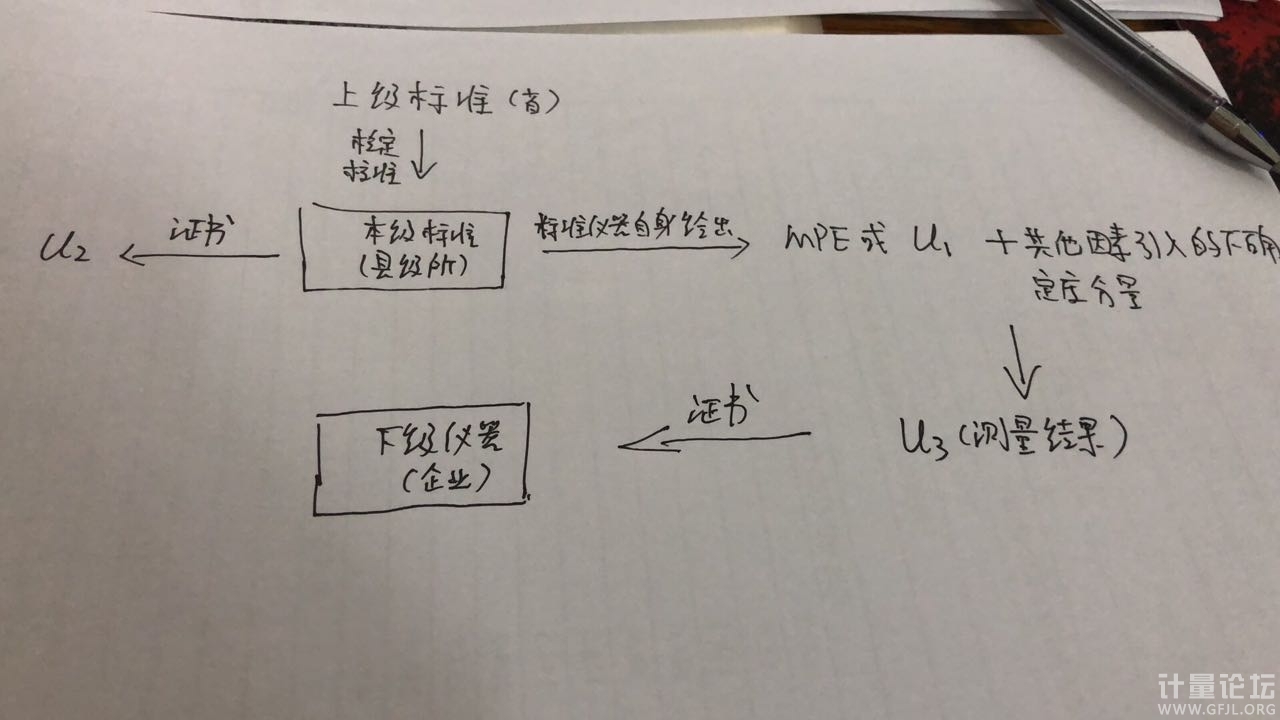 上级标准(省)
检定
校准
U2 证书 本级标准 标准仪器自身给出 MPE或 U1 +其他因素引入的不确
(县级所)
定度分量
下级仪器 证书 U3(测量结果)
(企业)
计量论坛
WWW.GFJL.ORG